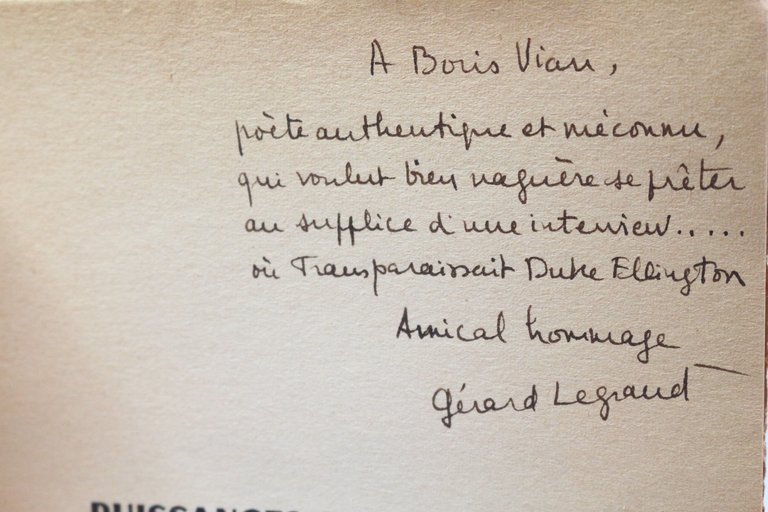 A Boris Vian,
poète authentique et méconnu,
qui voulut bien naguère se prêter
au supplice d'une interview.....
où Transparaissait Duke Ellington
Amical hommage
Gérard Legrand
PUISSANCES